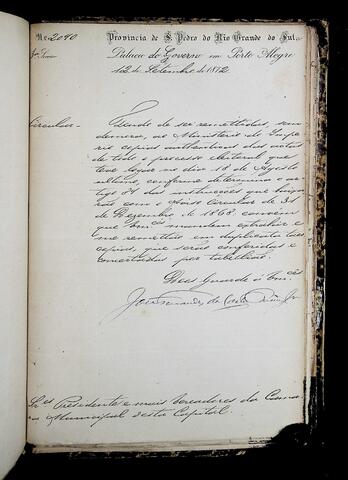 N.º 2090
Provincia de S. Pedro do Rio Grande do Sul.
Palacio do Governo em Porto Alegre
12 de Setembro de 1872
Circular
Tendo de ser remettidas sem
demora, ao Ministerio do Impe
rio copias authenticas das actas
de todo o processo eleitoral que
teve logar no dia 18 de Agosto
ultimo, conforme determina o ar-
tigo 21 das instrucções que baixa-
rão com o Aviso Circular de 31
de Dezembro de 1868, convém
que Vm.cês mandem extrahir e
me remettão em duplicata taes
copias, que serão conferidas e
concertadas por tabellião.
Deos Guarde a Vm.cês
José Fernandes da Costa Jr
Sr.es Presidente e mais Vereadores da Cama
ra Municipal desta Capital